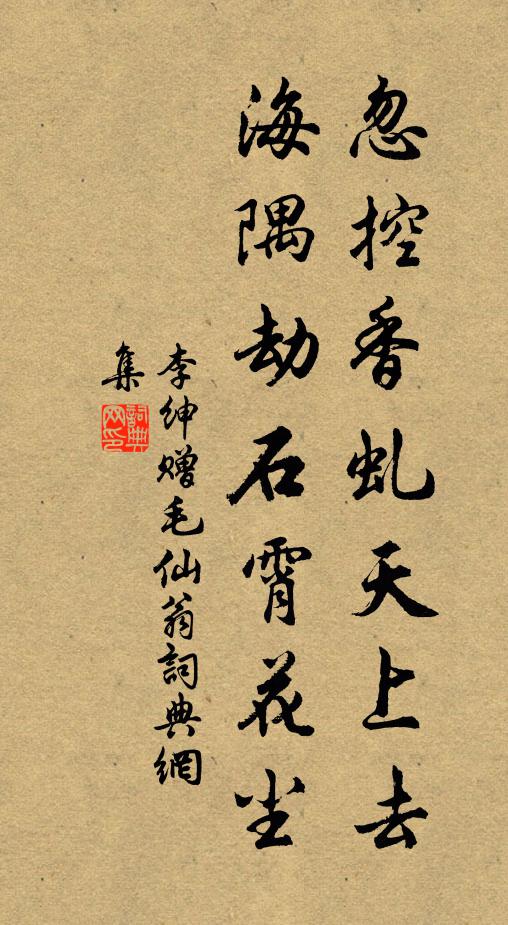 忽控香虬天上去
海隅劫石霄花尘
李绅赠毛仙翁詞典網
集
詞典
网印